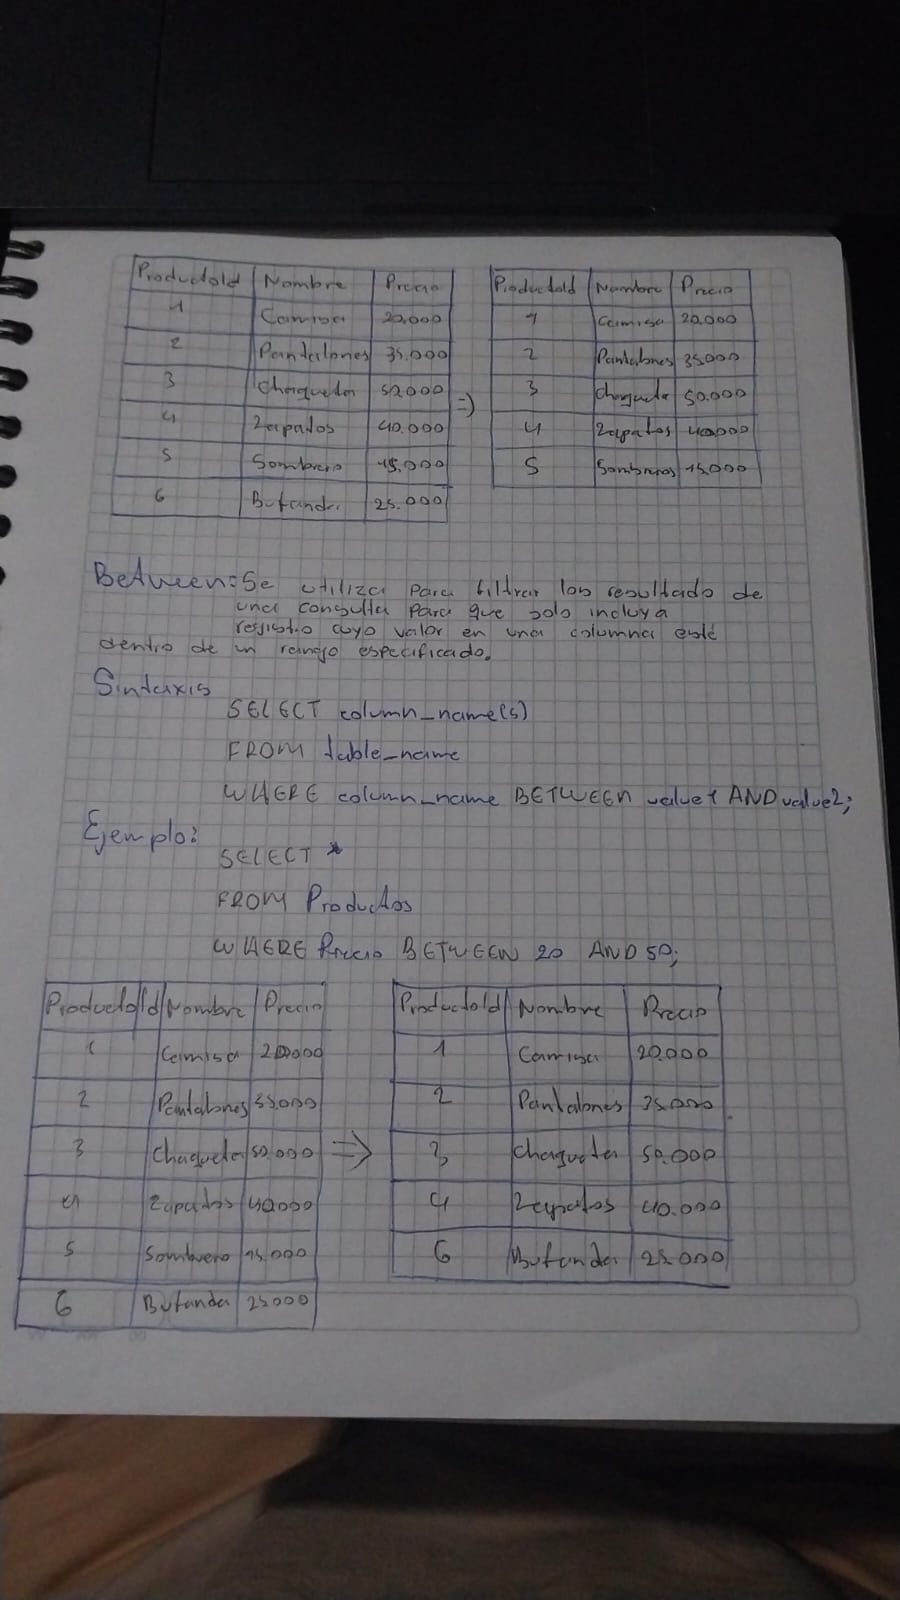 ProductoId Nombre Precio
1 Camisa 20.000
2 Pantalones 35.000
3 Chaqueta 50.000
4 Zapatos 40.000
5 Sombrero 15.000
6 Bufanda 25.000
=>
ProductoId Nombre Precio
1 Camisa 20.000
2 Pantalones 35000
3 Chaqueta 50.000
4 Zapatos 40000
5 Sombreros 15,000
Between: Se utiliza para filtrar los resultado de
una consulta para que solo incluya
registro cuyo valor en una columna esté
dentro de un rango especificado.
Sintaxis
SELECT column_name(s)
FROM table_name
WHERE column_name BETWEEN value1 AND value2;
Ejemplo:
SELECT *
FROM Productos
WHERE Precio BETWEEN 20 AND 50;
ProductoId Nombre Precio
1 Camisa 20000
2 Pantalones 35000
3 Chaqueta 50.000
4 Zapatos 40000
5 Sombrero 15,000
6 Bufanda 25000
=>
ProductoId Nombre Precio
1 Camisa 20.000
2 Pantalones 35.000
3 Chaqueta 50.000
4 Zapatos 40.000
6 Bufanda 25.000